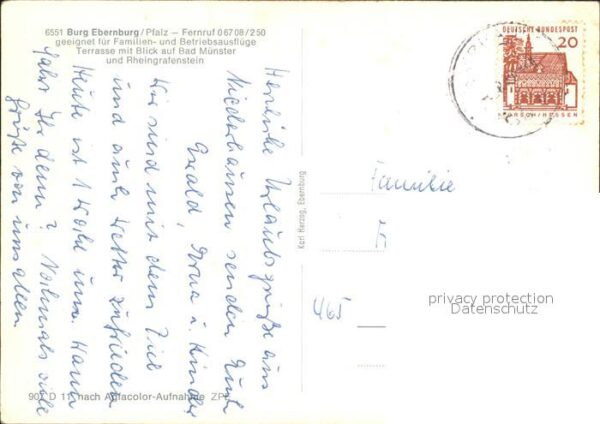 6551 Burg Ebernburg/Pfalz – Fernruf 06708/250
geeignet für Familien- und Betriebsausflüge
Terrasse mit Blick auf Bad Münster
und Rheingrafenstein
Herzliche Urlaubsgrüße aus
Niederhausen senden Euch
Ewald, Erna u. Kinder
Wir sind mit dem Ziel
und auch Wetter zufrieden
Heute ist 1 Woche um. Wann
fahrt Ihr denn? Nochmals viele
Grüße von uns allen
DEUTSCHE BUNDESPOST
20
LORSCH/HESSEN
Familie
465
Karl Herzog, Ebernburg
privacy protection
Datenschutz
nach Agfacolor-Aufnahme